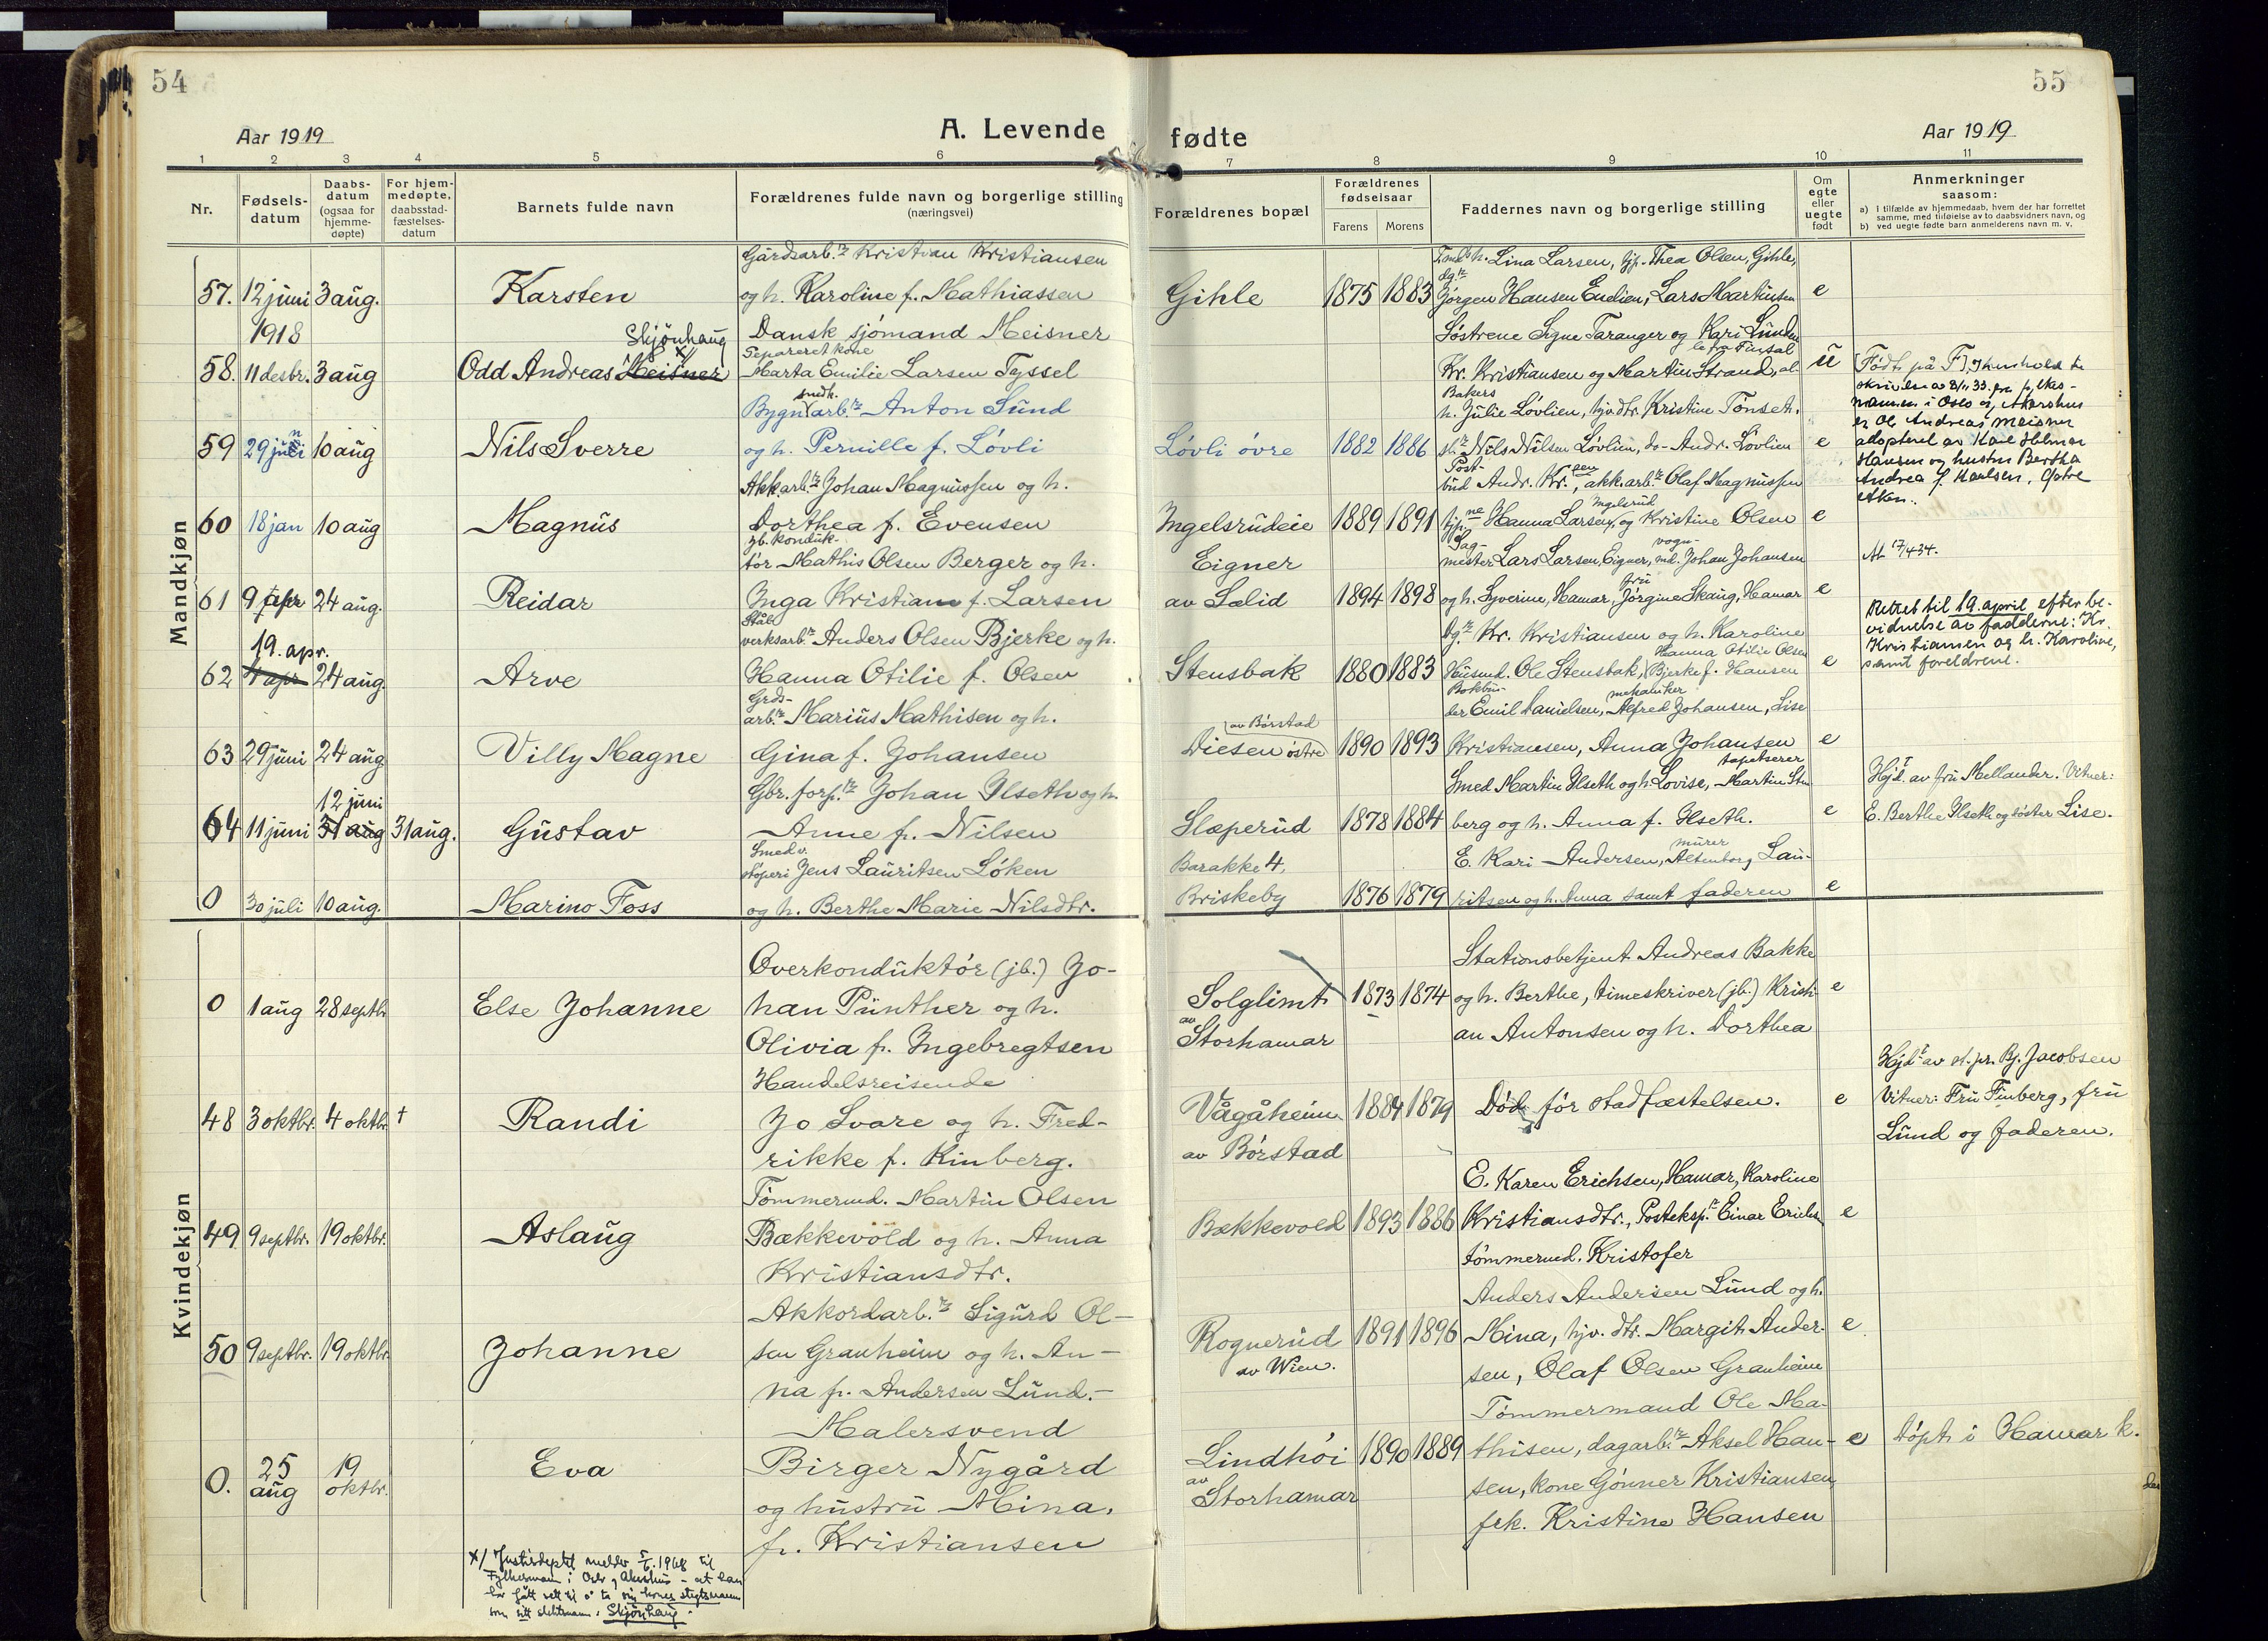 54
55
A. Levende fødte
Aar 1919
Aar 1919
1 2 3 4 5 6 7 8 9 10 11
Nr.
Fødsels-
datum
Daabs-
datum
(ogsaa for
hjemme-
døpte)
For hjem-
medøpte,
daabsstad-
fæstelses-
datum
Barnets fulde navn
Forældrenes fulde navn og borgerlige stilling
(næringsvei)
Forældrenes bopæl
Forældrenes
fødselsaar
Farens Morens
Faddernes navn og borgerlige stilling
Om
egte
eller
uegte
født
Anmerkninger
saasom:
a) i tilfælde av hjemmedaab, hvem der har forrettet
samme, med tilføielse av to daabsvidners navn, og
b) ved uegte fødte barn anmelderens navn m. v.
Mandkjøn
57. 12 juni 3 aug. Karsten
Gårdsarb. Kristian Kristiansen
og h. Karoline f. Mathiassen
Gihle 1875 1883
h. Lina Larsen, tjp. Thea Olsen, Gihle,
Jørgen Hansen Endien, Lars Martinsen
e
1918
58. 11 desbr. 3 aug Odd Andreas Meisner
Skjønhaug x/
Dansk sjømand Meisner
Separeret kone
Marta Emilie Larsen Tyssel
Søstrene Signe Taranger og Kari Lunden
Kr. Kristiansen og Martin Strand,
u
59 29 juni 10 aug Nils Sverre
Bygn. smdh. arb. Anton Sund
og h. Pernille f. Løvli
Løvli øvre 1882 1886
Bakers
h. Julie Løvlien, hjv. dtr. Kristine Tønset.
Nils Nilsen Løvlien, do- Andr. Løvlien
e
[Født på F]. I henhold til
skrivelse av 8/11 33 fra fylkes-
mannen i Oslo og Akershus
er Od Andreas Meisner
adopteret av Karl Hilmar
Hansen og hustru Bertha
Andrea f. Karlsen,
60 18 jan 10 aug Magnus
Akk.arb. Johan Magnussen og h.
Dorthea f. Evensen
Ingelsrudeie 1889 1891
Post-
bud Andr. Kr.sen, akk.arb. Olaf Magnussen
tjp. Hanna Larsen, Ingelsrud og Kristine Olsen
e
At 17/4 34.
61 9 apr 24 aug. Reidar
Jb. konduk-
tør Mathis Olsen Berger og h.
Inga Kristiane f. Larsen
Eigner
av Sælid 1894 1898
Sag-
mester Lars Larsen, Eigner, vogn-
md. Johan Johansen
og h. Syverine, Hamar, fru Jørgine Skaug, Hamar
e
19. apr.
62 4 apr 24 aug. Arve
Stål-
verksarb. Anders Olsen Bjerke og h.
Hanna Otilie f. Olsen
Stensbak 1880 1883
Dg. Kr. Kristiansen og h. Karoline
Husmd. Ole Stensbak, Hanna Otilie Olsen
Bjerke f. Hansen
e
Rettet til 19. april efter be-
vidnelse av fadderne: Kr.
Kristiansen og h. Karoline,
samt foreldrene.
63 29 juni 24 aug Villy Magne
Grds-
arb. Marius Mathisen og h.
Gina f. Johansen
Diesen østre av Børstad 1890 1893
Bokbin-
der Emil Danielsen, mekaniker Alfred Johansen, Lise
Kristiansen, Anna Johansen
e
64 11 juni 12 juni 31 aug 31 aug. Gustav
Gbr. forp. Johan Ilseth og h.
Anne f. Nilsen
Slæperud 1878 1884
Smed Martin Ilseth og h. Lovise, tapetserer Martin Sten
berg og h. Anna f. Ilseth.
e
Hjd. av fru Mellander. Vitner:
E. Berthe Ilseth og søster Lise.
0 30 juli 10 aug. Marino Foss
Smed v.
støperi Jens Lauritsen Løken
og h. Berthe Marie Nilsdtr.
Barakke 4,
Briskeby 1876 1879
E. Kari Andersen, murer Altenborg Lau-
ritsen og h. Anna samt faderen
e
Kvindekjøn
0 1 aug 28 septbr Else Johanne
Overkonduktør (jb.) Jo-
han Pünther og h.
Olivia f. Ingebregtsen
Solglimt
av
Storhamar 1873 1874
Stationsbetjent Andreas Bakke
og h. Berthe, timeskriver (jb.) Kristi-
an Antonsen og h. Dorthea
e
48 3 oktbr. 4 oktbr. † Randi
Handelsreisende
Jo Svare og h. Fred-
rikke f. Kinberg.
Vågåheim
av Børstad 1884 1879
Død før stadfæstelsen.
e
Hjd. av st. pr. Bj. Jacobsen
Vitner: Fru Finberg, fru
Lund og faderen.
49 9 septbr. 19 oktbr. Aslaug
Tømmermd. Martin Olsen
Bækkevold og h. Anna
Kristiansdtr.
Bækkevold 1893 1886
E. Karen Erichsen, Hamar, Karoline
Kristiansdtr., Posteksp. Einar Erichs
tømmermd. Kristofer
e
50 9 septbr. 19 oktbr. Johanne
Akkordarb. Sigurd Ol-
sen Granheim og h. An-
na f. Andersen Lund.-
Rognerud
av Wien. 1891 1896
Anders Andersen Lund og h.
Mina, hjv. dtr. Margit Ander-
sen, Olaf Olsen Granheim
e
0. 25 aug 19 oktbr. Eva
Malersvend
Birger Nygård
og hustru Mina,
f. Kristiansen
Lindhøi
av
Storhamar 1890 1889
Tømmermand Ole Ma-
thisen, dagarb. Aksel Han-
sen, kone Gønner Kristiansen,
frk. Kristine Hansen
e
døpt i Hamar k.
x/ Justisdeptet melder 5/6. 1968 til
Fylkesmann i Oslo og Akershus - at han
har fått rett til å ta sin kones slegtsnavn
som sitt slektsnavn: Skjønhaug.